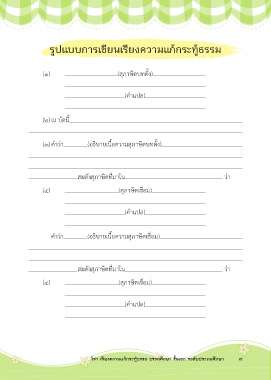 รูปแบบการเขียนเรียงความแก้กระทู้ธรรม
(๑) ____________(สุภาษิตบทตั้ง)____________
____________(คำแปล)____________
(๒) ณ บัดนี้____________
(๓) คำว่า______(อธิบายเนื้อความสุภาษิตบทตั้ง)____________
____________สมดังสุภาษิตที่มาใน____________ ว่า
(๔) ____________(สุภาษิตเชื่อม)____________
____________(คำแปล)____________
คำว่า______(อธิบายเนื้อความสุภาษิตเชื่อม)____________
____________สมดังสุภาษิตที่มาใน____________ ว่า
(๔) ____________(สุภาษิตเชื่อม)____________
____________(คำแปล)____________
วิชา เรียงความแก้กระทู้ธรรม ธรรมศึกษา ชั้นเอก ระดับประถมศึกษา